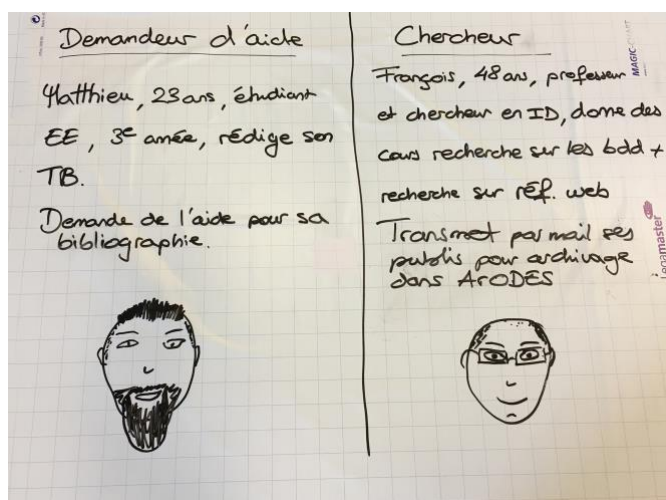 Demandeur d'aide
Matthieu, 23 ans, étudiant
EE, 3e année, rédige son
TB.
Demande de l'aide pour sa
bibliographie.
Chercheur
François, 48 ans, professeur
et chercheur en ID, donne des
cours recherche sur les bdd +
recherche sur réf. web
Transmet par mail ses
publis pour archivage
dans ArODES
Legamaster